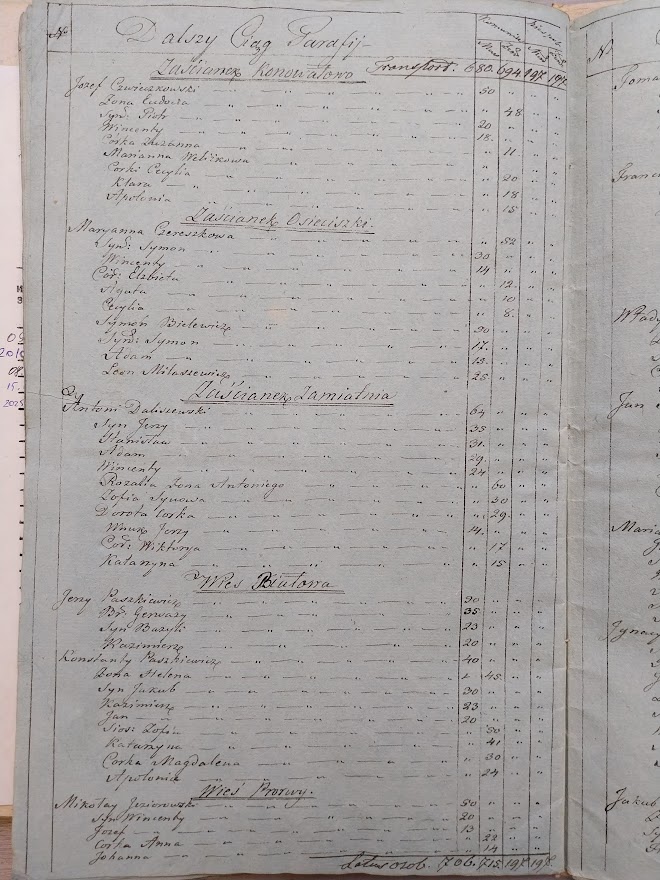 No Dalszy Ciąg Parafij
Zaścianek Konowałowo Transport. 680. 694 197. 197.
Jozef Czwieczkowski 50
Zona Ludowa 48
Syn: Piotr 20
Wincenty 18.
Córka Zuzanna 11.
Marianna Weliżkowa
Corki Cecylia 20
Klara 18
Apolonia 15
Zaścianek Osieciszki.
Maryanna Czereszkowa 52
Syn: Symon 30
Wincenty 14
Cór: Elzbieta 12.
Agata 10
Cecylia 8.
Symon Bielewicz 90
Syn: Symon 17.
Adam 15.
Leon Milaszewicz 25
Zaścianek Zamiatnia
Antoni Daliszewski 64
Syn Jerzy 35
Stanisław 31.
Adam 29.
Wincenty 24
Rozalia Zona Antoniego 60
Zofia Synowa 30
Dorota Corka 29.
Wnuk Jerzy 14.
Cór: Wiktorya 17
Katarzyna 15
Wieś
Jerzy Paszkiewicz 90
Br: Gerwazy 35
Syn Bazyli 23
Kazimierz 20
Konstanty Paszkiewicz 40
Zona Helena 45.
Syn Jakub 30
Kazimierz 23
Jan 20
Sios: Zofia 50
Katarzyna 41
Corka Magdalena 30
Apolonia 24
Wieś Prorwy.
Mikołay Jeziorowski 50
Syn Wincenty 20
Jozef 13
Corka Anna 22
Johanna 14
Latus osob. 706. 715. 197. 197.